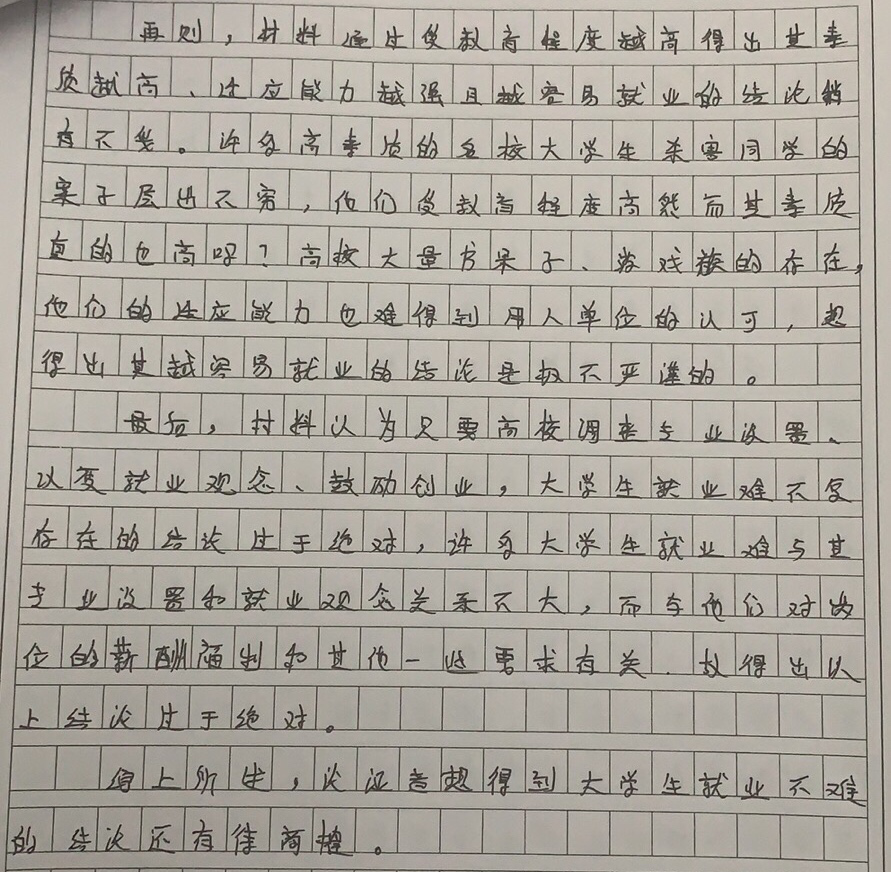 再则，材料通过受教育程度越高得出其素
质越高、适应能力越强且越容易就业的结论稍
有不妥。许多高素质的名校大学生杀害同学的
案子层出不穷，他们受教育程度高然而其素质
真的也高吗？高校大量书呆子、游戏族的存在，
他们的适应能力也难得到用人单位的认可，想
得出其越容易就业的结论是极不严谨的。
最后，材料认为只要高校调整专业设置、
改变就业观念、鼓励创业，大学生就业难不复
存在的结论过于绝对，许多大学生就业难与其
专业设置和就业观念关系不大，而与他们对岗
位的薪酬福利和其他一些要求有关，故得出以
上结论过于绝对。
综上所述，论证者想得到大学生就业不难
的结论还有待商榷。